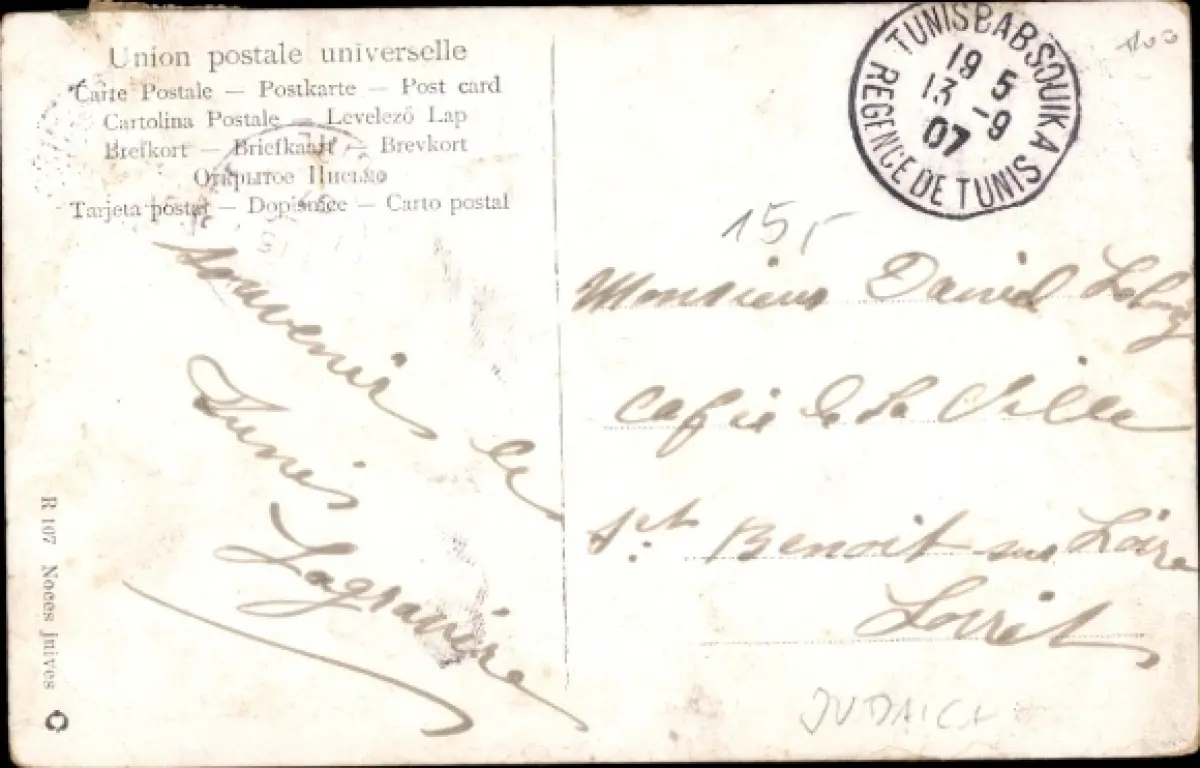 Union postale universelle
Carte Postale — Postkarte — Post card
Cartolina Postale — Levelező Lap
Brefkort — Briefkaart — Brevkort
Открытое Письмо
Tarjeta postal — Dopisnice — Carto postal
TUNIS BAB SOUIKA
19 5
13 -9
07
REGENCE DE TUNIS
15,-
Monsieur Daniel
Cafie de la Ville
St. Benoit sur Loire
Loiret
Souvenir de
Tunis
Lagravière
R 107 Noces juives
JUDAICA